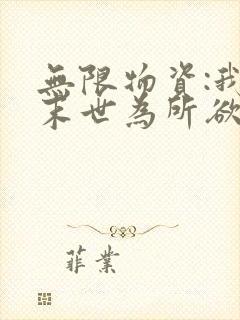 無限物資:我
末世為所欲
菲業